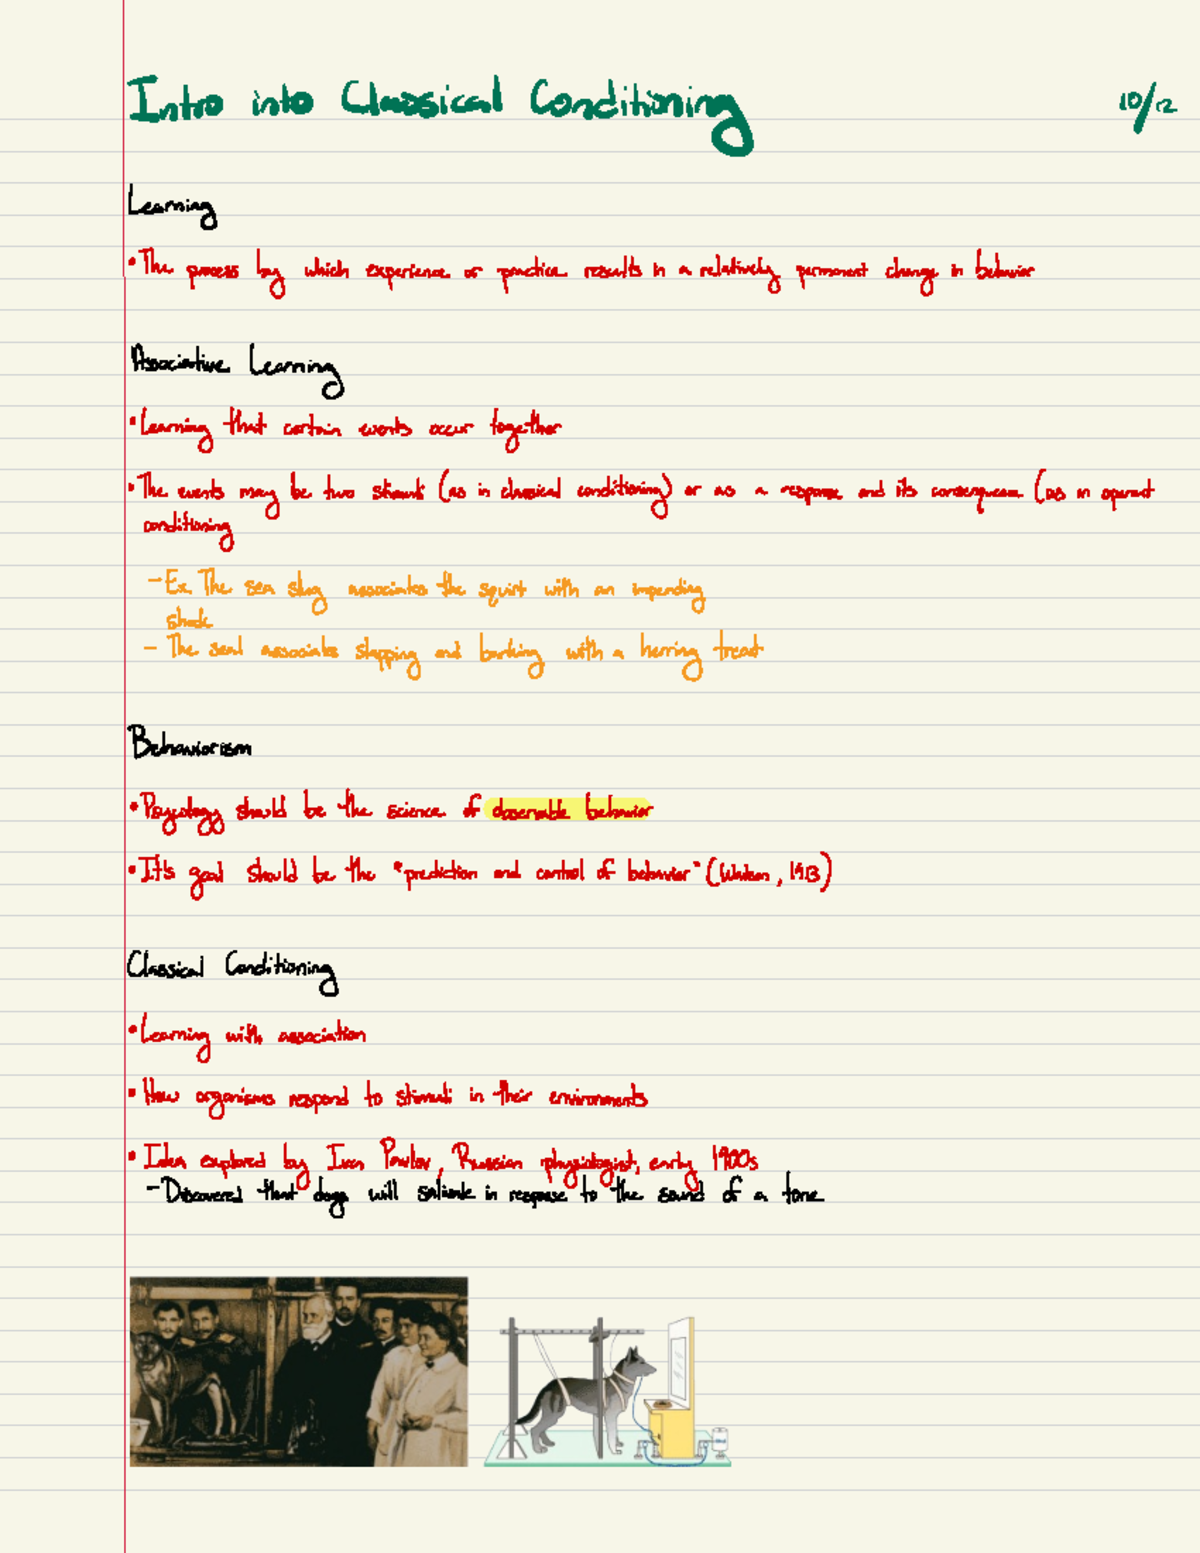 Intro into Classical Conditioning
10/12
Learning
•The process by which experience or practice results in a relatively permanent change in behavior
Associative Learning
•Learning that certain events occur together
•The events may be two stimuli (as in classical conditioning) or as a response and its consequence (as in operant
conditioning
-Ex. The sea slug associates the squirt with an impending
shock
- The seal associates slapping and barking with a herring treat
Behaviorism
•Psycology should be the science of observable behavior
•It's goal should be the "prediction and control of behavior" (Watson, 1913)
Classical Conditioning
•Learning with association
•How organisms respond to stimuli in their environments
•Idea explored by Ivan Pavlov, Russian physiologist, early 1900s
-Discovered that dogs will salivate in response to the sound of a tone